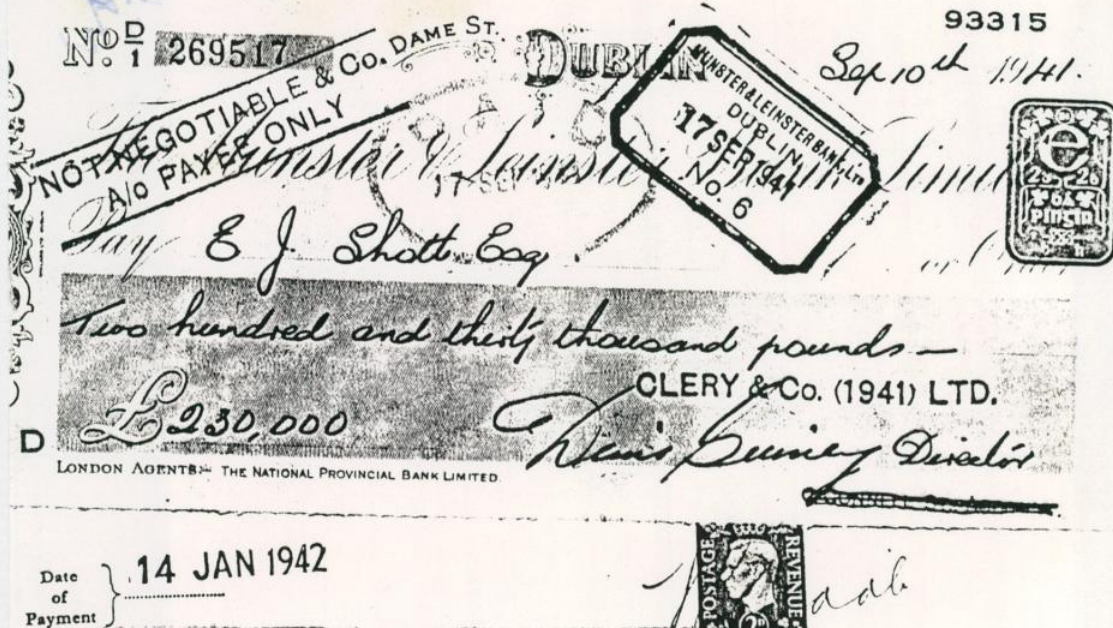 93315
No. D/1 269517
DUBLIN
Sep 10th 1941.
NOT NEGOTIABLE & Co. DAME ST.
A/c PAYEE ONLY
MUNSTER & LEINSTER BANK LTD
DUBLIN
17 SEP 1941
NO. 6
The Munster & Leinster Bank Limited
17 SEP
6d
PINGIN
Pay E J. Shott Esq
or Order
Two hundred and thirty thousand pounds —
CLERY & Co. (1941) LTD.
£230,000
Denis Guiney Director
D
LONDON AGENTS:- THE NATIONAL PROVINCIAL BANK LIMITED.
Date of Payment
14 JAN 1942
POSTAGE
REVENUE